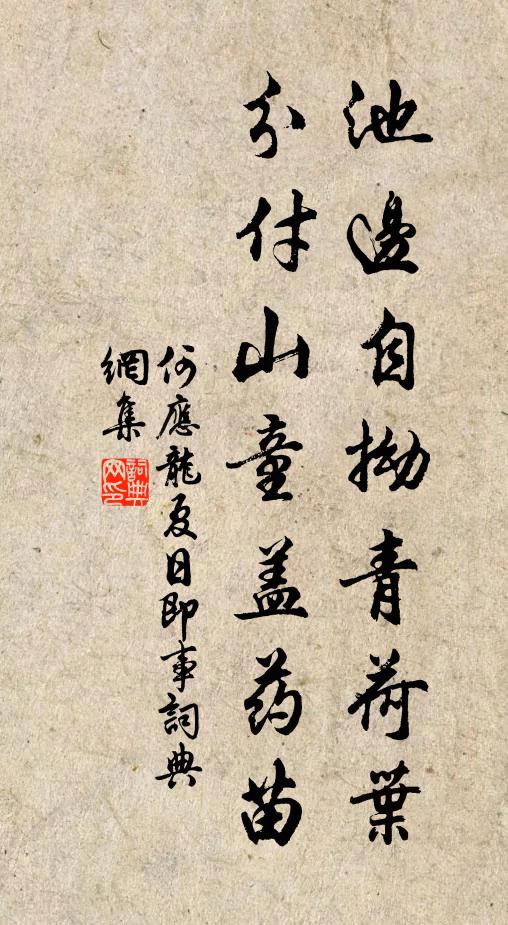 池邊自拗青荷葉
分付山童盖药苗
何應龍夏日即事詞典
網集
詞典網印